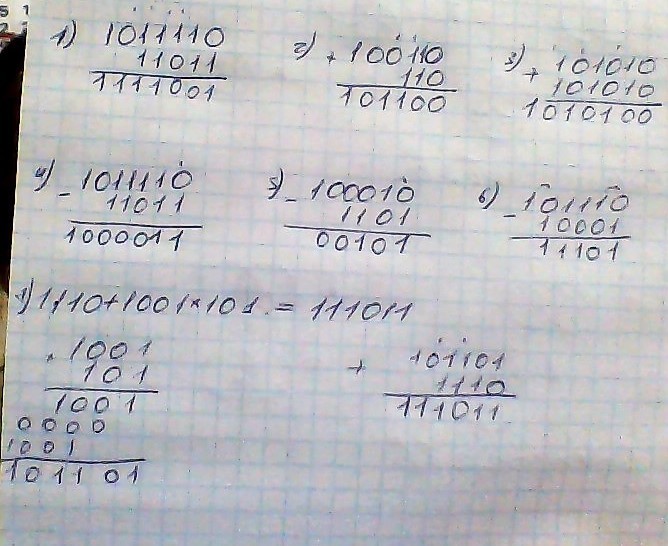 1) 1011110
11011
1111001
2) + 100110
110
101100
3) + 101010
101010
1010100
4) - 1011110
11011
1000011
5) - 100010
1101
00101
6) - 101110
10001
11101
1110+1001*101 = 111011
1001
101
1001
0000
1001
101101
+ 101101
1110
111011